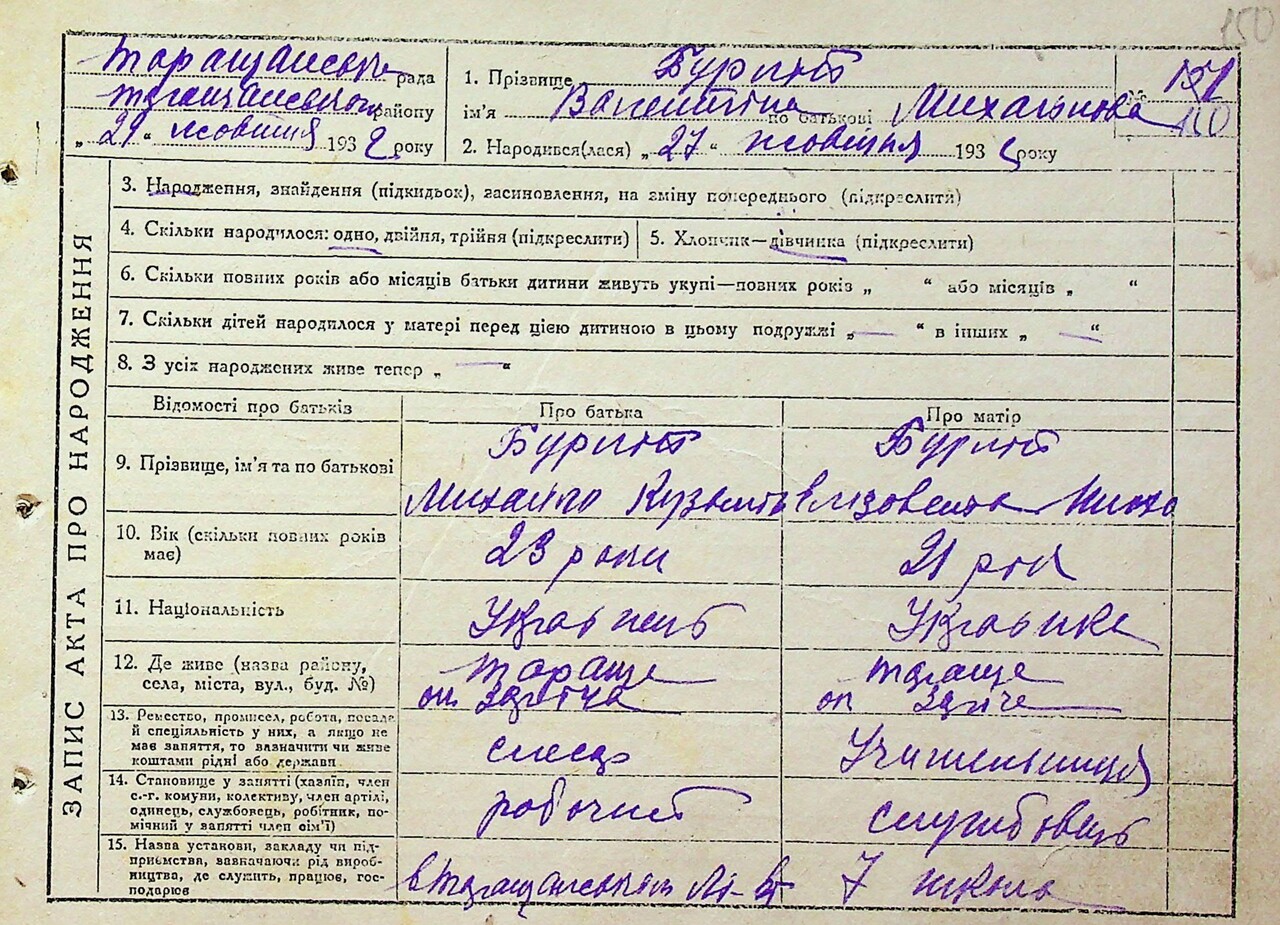 150
Таращанська рада
Таращанського району
„29" жовтня 1932 року
1. Прізвище Бурлій
ім'я Валентина по батькові Михайлова
2. Народився(лася) „27" жовтня 1932 року
151
150
ЗАПИС АКТА ПРО НАРОДЖЕННЯ
3. Народження, знайдення (підкидьок), засиновлення, на зміну попереднього (підкреслити)
4. Скільки народилося: одно, двійня, трійня (підкреслити)
5. Хлопчик—дівчинка (підкреслити)
6. Скільки повних років або місяців батьки дитини живуть укупі—повних років „ " або місяців „ "
7. Скільки дітей народилося у матері перед цією дитиною в цьому подружжі „—" в інших „—"
8. З усіх народжених живе тепер „—"
Відомості про батьків
Про батька
Про матір
9. Прізвище, ім'я та по батькові
Бурлій
Михайло
Бурлій
Єлізовета
10. Вік (скільки повних років
має)
23 роки
21 рік
11. Національність
Українець
Українка
12. Де живе (назва району,
села, міста, вул., буд. №)
Тараща
Тараща
13. Ремество, промисел, робота, посада
й спеціяльність у них, а якщо не
має заняття, то вазначити чи живе
коштами рідні або держави
слесар
Учительниця
14. Становище у занятті (хазяїн, член
с.-г. комуни, колективу, член артілі,
одинець, службовець, робітник, по-
мічний у занятті член сім'ї)
робочий
службовець
15. Назва установи, закладу чи під-
приємства, зазначаючи рід вироб-
ництва, де служить, працює, гос-
подарює
в Таращанськім
7 школа